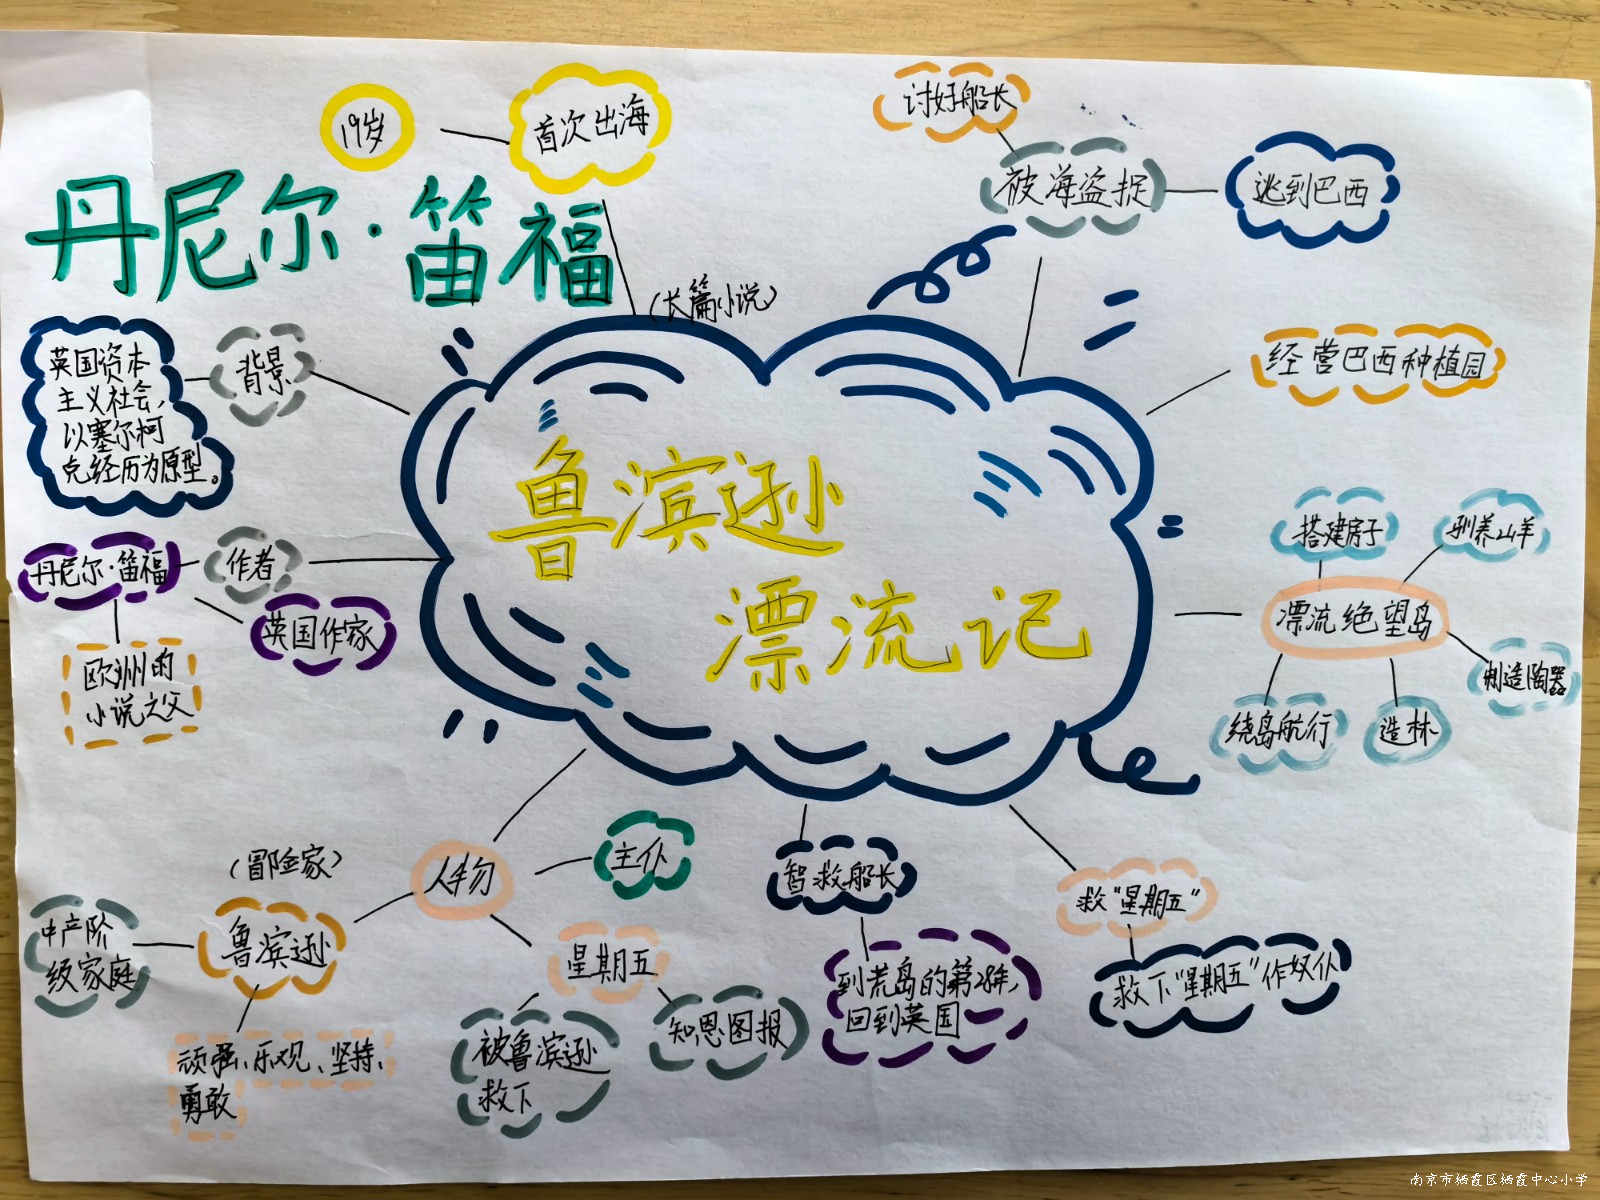 19岁
首次出海
讨好船长
被海盗捉
逃到巴西
丹尼尔·笛福
(长篇小说)
背景
英国资本
主义社会,
以塞尔柯
克经历为原型。
经营巴西种植园
鲁滨逊
漂流记
搭建房子
驯养山羊
丹尼尔·笛福
作者
英国作家
漂流绝望岛
欧洲的
小说之父
制造陶器
绕岛航行
造林
(冒险家)
人物
主仆
智救船长
救"星期五"
中产阶
级家庭
鲁滨逊
星期五
到荒岛的第28年,
回到英国
救下"星期五"作奴仆
顽强、乐观、坚持、
勇敢
被鲁滨逊
救下
知恩图报
南京市栖霞区栖霞中心小学